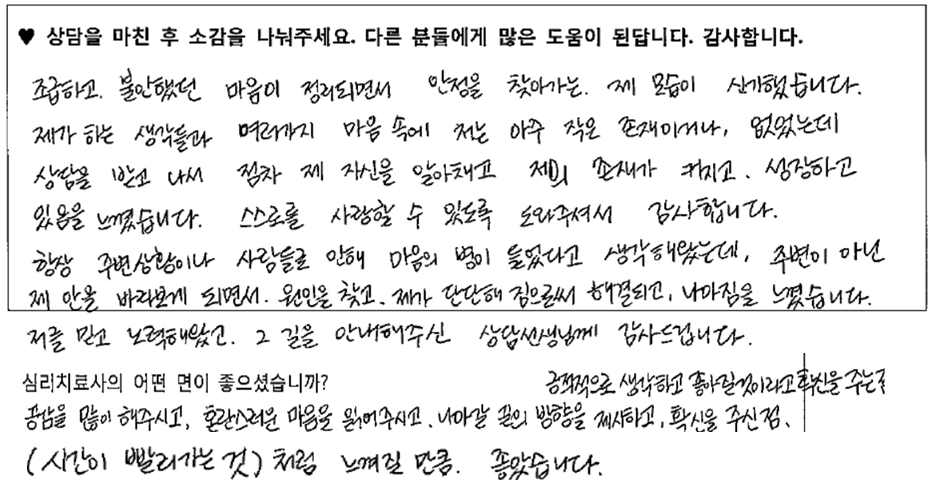 ♥ 상담을 마친 후 소감을 나눠주세요. 다른 분들에게 많은 도움이 된답니다. 감사합니다.
조급하고. 불안했던 마음이 정리되면서 안정을 찾아가는. 제 모습이 신기했습니다.
제가 하는 생각들과 여러가지 마음 속에 저는 아주 작은 존재이거나, 없었는데
상담을 받고 나서 점차 제 자신을 알아채고 제의 존재가 커지고. 성장하고
있음을 느꼈습니다. 스스로를 사랑할 수 있도록 도와주셔서 감사합니다.
항상 주변상황이나 사람들로 인해 마음의 병이 들었다고 생각해왔는데, 주변이 아닌
제 안을 바라보게 되면서. 원인을 찾고. 제가 단단해 짐으로써 해결되고, 나아짐을 느꼈습니다.
저를 믿고 노력해왔고. 그 길을 안내해주신 상담선생님께 감사드립니다.
심리치료사의 어떤 면이 좋으셨습니까? 긍정적으로 생각하고 좋아질것이라고 확신을 주는
공감을 많이 해주시고, 혼란스러운 마음을 읽어주시고. 나아갈 길의 방향을 제시하고, 확신을 주신 점.
(시간이 빨리가는 것) 처럼 느껴질 만큼. 좋았습니다.